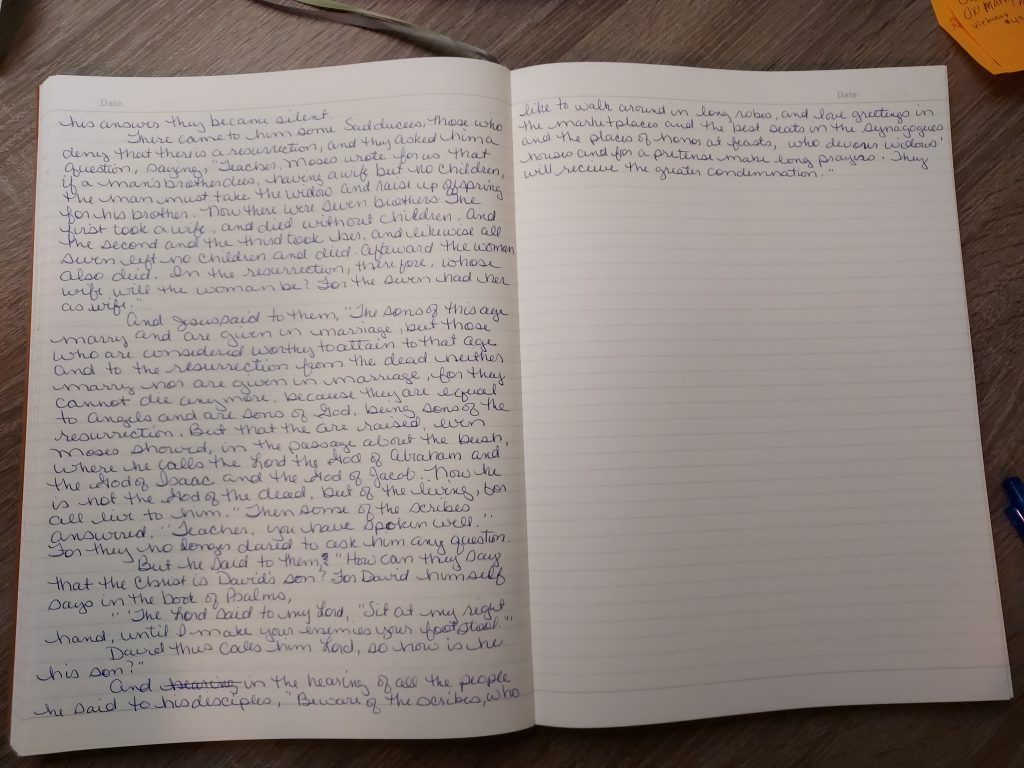 Date:
his answer they became silent.
There came to him some Sadducees, those who
deny that there is a resurrection, and they asked him a
question, saying, "Teacher, Moses wrote for us that
if a man's brother dies, having a wife but no children,
the man must take the widow and raise up offspring
for his brother. Now there were seven brothers. The
first took a wife, and died without children. And
the second and the third took her, and likewise all
seven left no children and died. Afterward the woman
also died. In the resurrection, therefore, whose
wife will the woman be? For the seven had her
as wife."
And Jesus said to them, "The sons of this age
marry and are given in marriage, but those
who are considered worthy to attain to that age
and to the resurrection from the dead neither
marry nor are given in marriage, for they
cannot die anymore, because they are equal
to angels and are sons of God, being sons of the
resurrection. But that the are raised, even
Moses showed, in the passage about the bush,
where he calls the Lord the God of Abraham and
the God of Isaac and the God of Jacob. Now he
is not the God of the dead, but of the living, for
all live to him." Then some of the scribes
answered, "Teacher, you have spoken well."
For they no longer dared to ask him any question.
But he said to them, "How can they say
that the Christ is David's son? For David himself
says in the book of Psalms,
"'The Lord said to my Lord, "Sit at my right
hand, until I make your enemies your footstool."'
David thus calls him Lord, so how is he
his son?"
And hearing in the hearing of all the people
he said to his disciples, "Beware of the scribes, who
Date:
like to walk around in long robes, and love greetings in
the marketplaces and the best seats in the synagogues
and the places of honor at feasts, who devour widows'
houses and for a pretense make long prayers. They
will receive the greater condemnation."